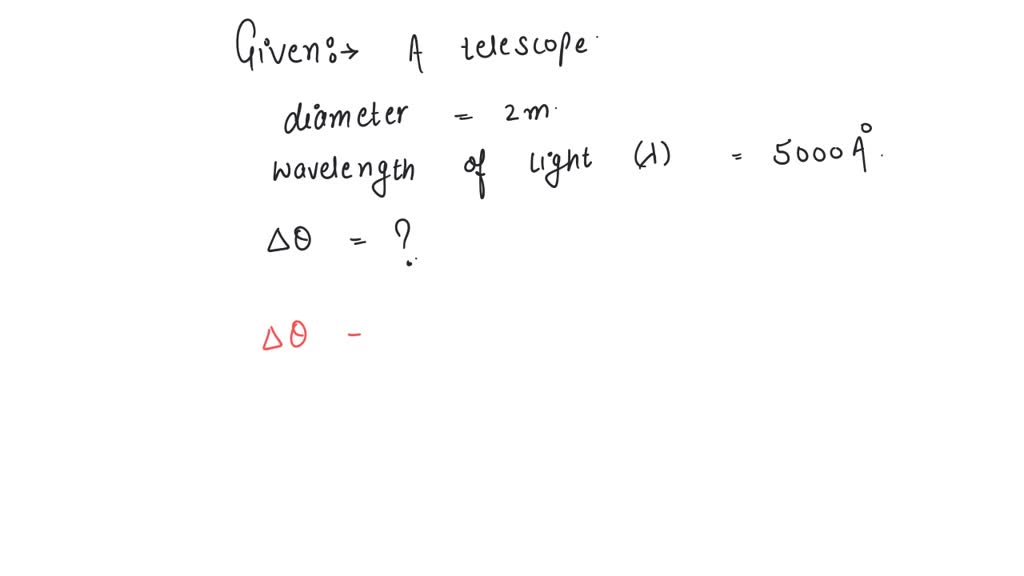 Given:→ A telescope.
diameter = 2m.
wavelength of light (λ) = 5000 Å.
Δθ = ?
Δθ -